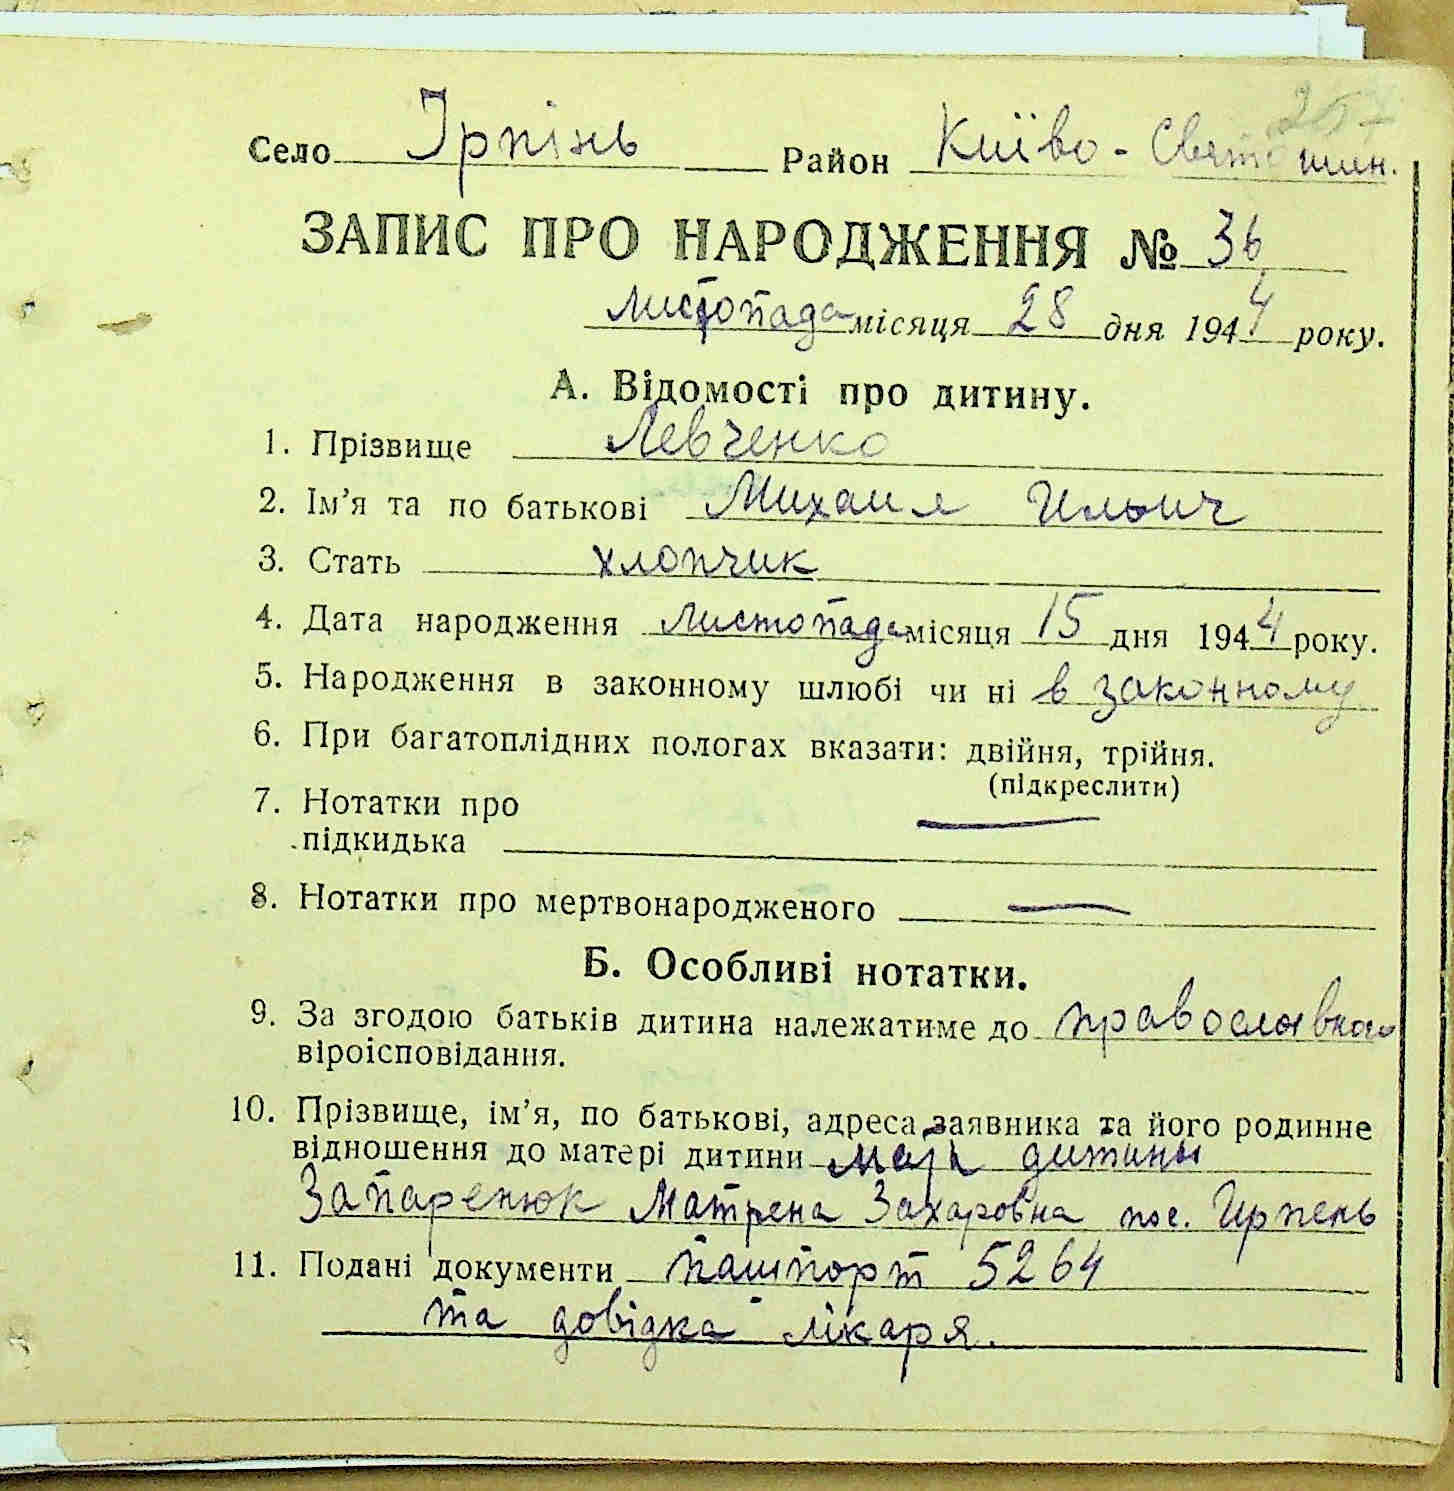 257
Село Ірпінь Район Київо-Святошин.
ЗАПИС ПРО НАРОДЖЕННЯ № 36
листопада місяця 28 дня 1944 року.
А. Відомості про дитину.
1. Прізвище Левченко
2. Ім’я та по батькові Михаил Ильич
3. Стать хлопчик
4. Дата народження листопада місяця 15 дня 1944 року.
5. Народження в законному шлюбі чи ні в законному
6. При багатоплідних пологах вказати: двійня, трійня.
(підкреслити)
7. Нотатки про
підкидька —
8. Нотатки про мертвонародженого —
Б. Особливі нотатки.
9. За згодою батьків дитина належатиме до православного
віроісповідання.
10. Прізвище, ім’я, по батькові, адреса заявника та його родинне
відношення до матері дитини мать дитины
Запаренюк Матрена Захаровна пос. Ирпень
11. Подані документи пашпорт 5264
та довідка лікаря.